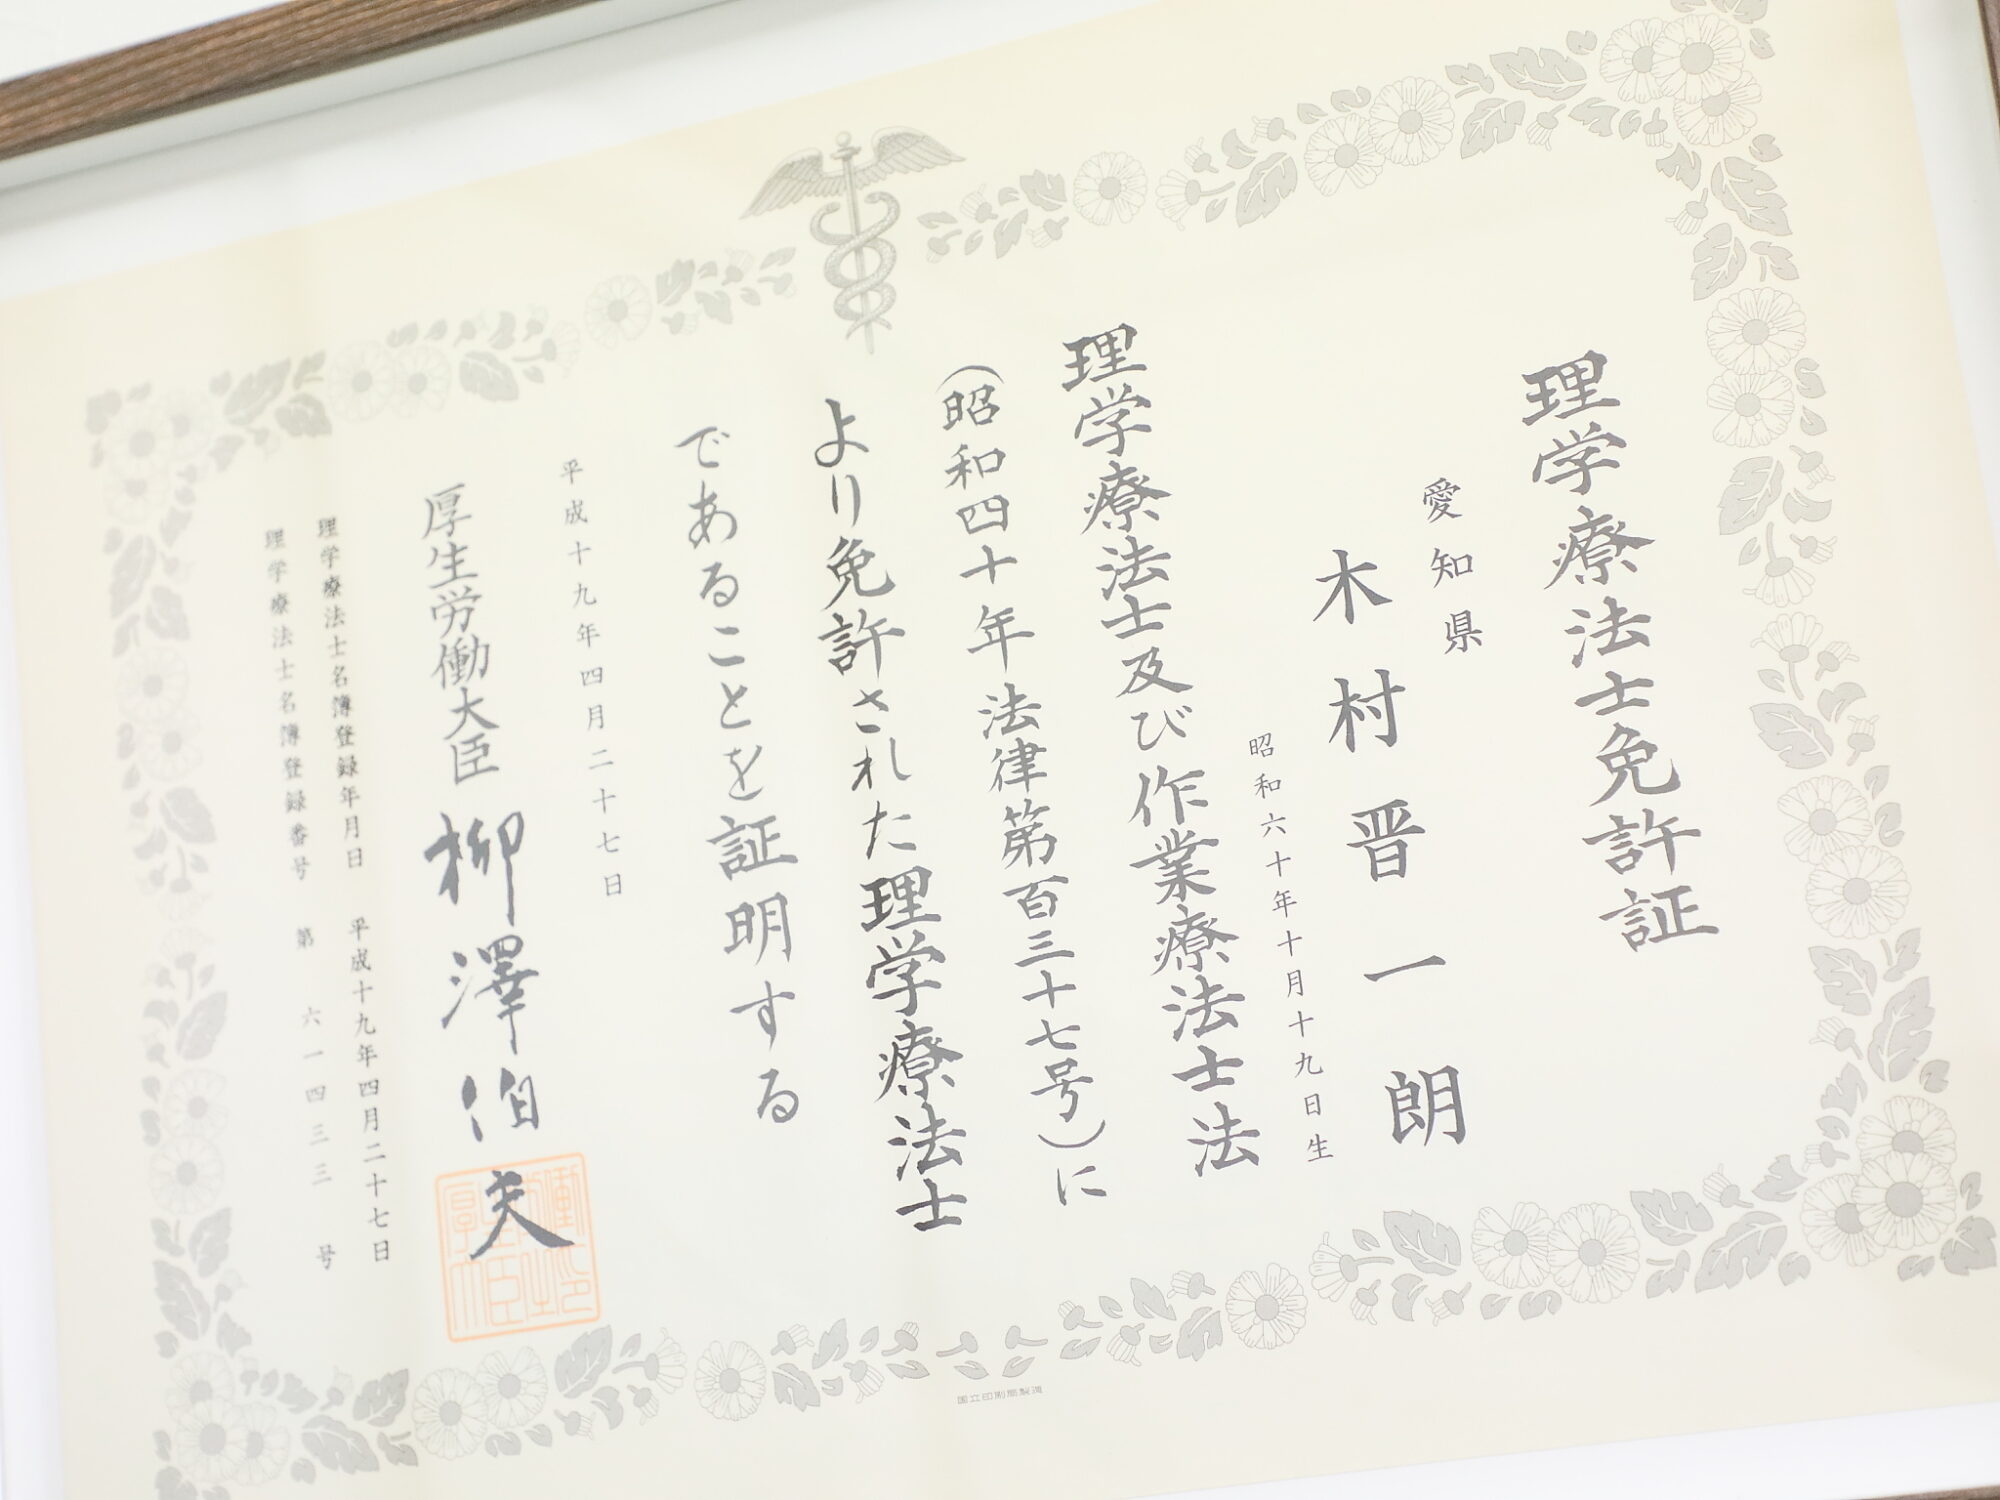 理学療法士免許証
愛知県
木村晋一朗
昭和六十年十月十九日生
理学療法士及び作業療法士法
(昭和四十年法律第百三十七号)に
より免許された理学療法士
であることを証明する
平成十九年四月二十七日
厚生労働大臣 柳澤伯夫
理学療法士名簿登録年月日 平成十九年四月二十七日
理学療法士名簿登録番号 第 六一四三三 号
国立印刷局製造